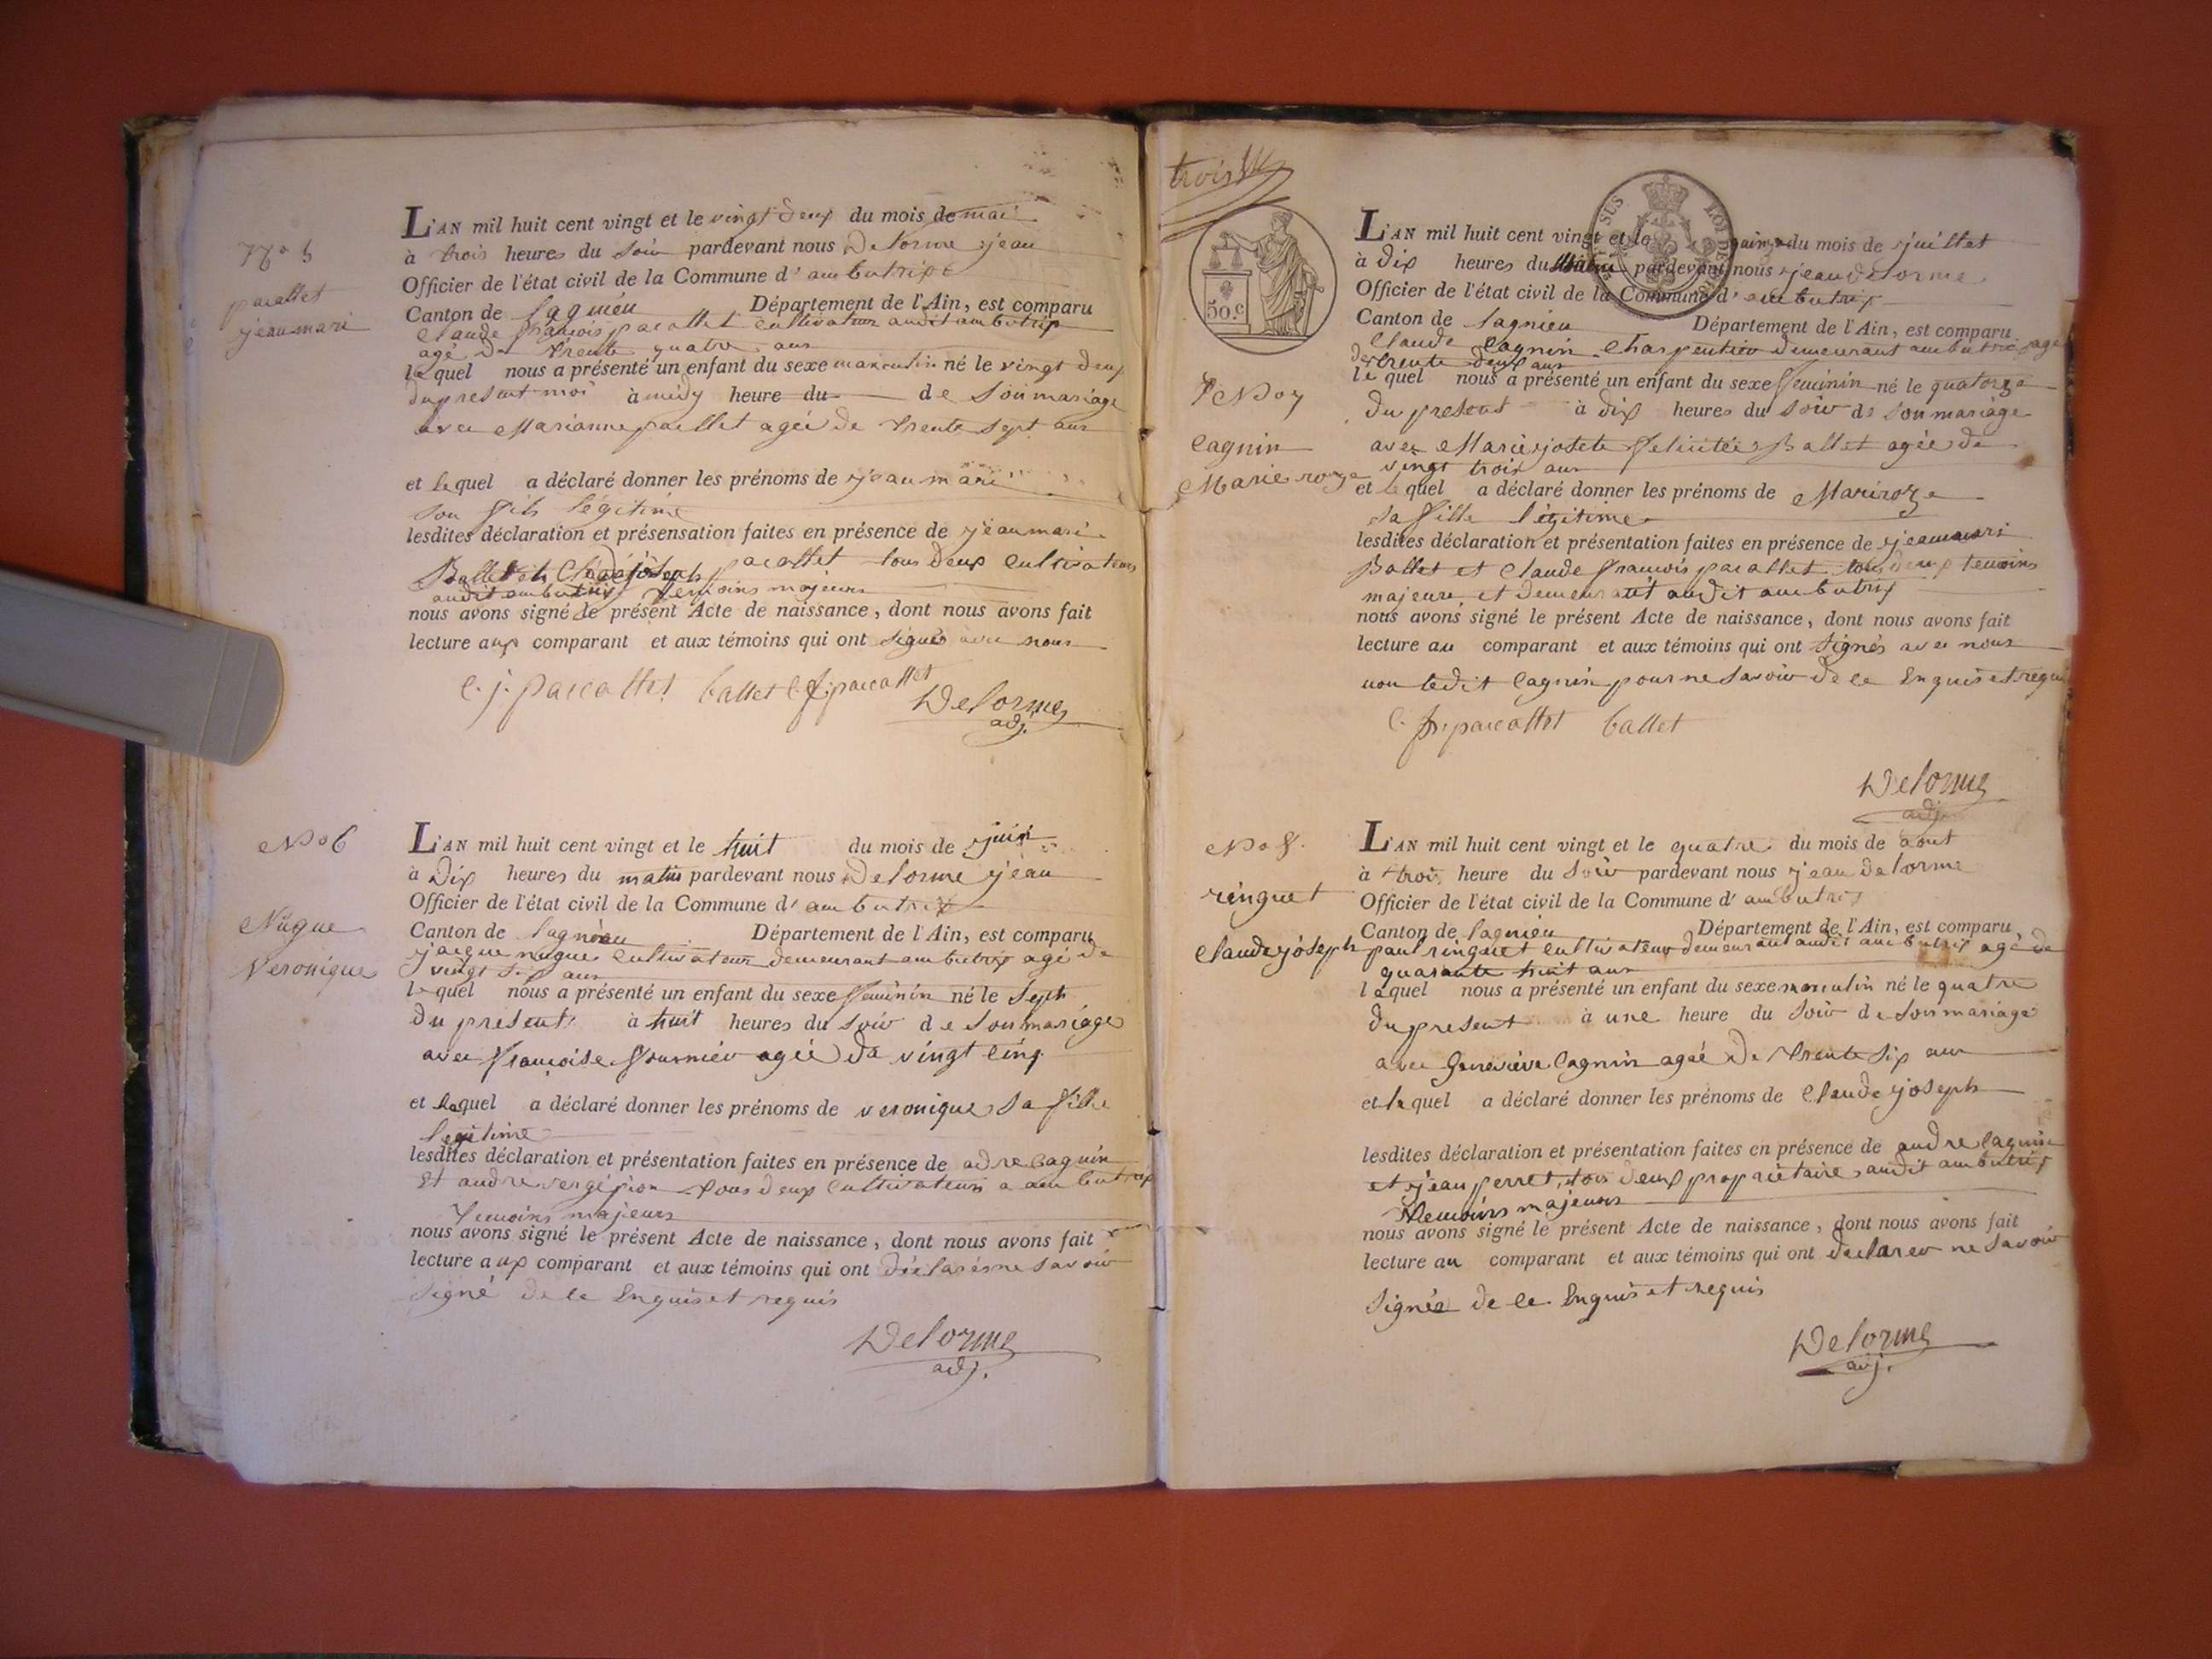 No 5
pacallet
jean mari
L'AN mil huit cent vingt et le vingt deux du mois de mai
à trois heures du soir pardevant nous Delorme jean
Officier de l'état civil de la Commune d'ambutrix
Canton de lagnieu Département de l'Ain, est comparu
Claude françois pacallet cultivateur audit ambutrix
agé de trente quatre ans
lequel nous a présenté un enfant du sexe masculin né le vingt deux
du present moi à midy heure du de son mariage
avec Marianne paellet agée de trente sept ans
et lequel a déclaré donner les prénoms de jean mari
son fils légitime
lesdites déclaration et présensation faites en présence de jean mari
Ballet et Claude joseph pacallet tous deux cultivateurs
audit ambutrix temoins majeurs
nous avons signé le présent Acte de naissance, dont nous avons fait
lecture aux comparant et aux témoins qui ont signés avec nous
C. j. paccallet ballet C. f. paccallet
Delorme
adj.
No 6
Nugue
Veronique
L'AN mil huit cent vingt et le huit du mois de juin
à dix heures du matin pardevant nous Delorme jean
Officier de l'état civil de la Commune d'ambutrix
Canton de lagnieu Département de l'Ain, est comparu
jacque nugue cultivateur demeurant ambutrix agé de
vingt six ans
lequel nous a présenté un enfant du sexe feminin né le sept
du présent à huit heures du soir de son mariage
avec françoise fournier agée de vingt cinq
et lequel a déclaré donner les prénoms de veronique sa fille
legitime
lesdites déclaration et présentation faites en présence de adre Cagnin
et andre vergé pion tous deux cultivateurs a ambutrix
temoins majeurs
nous avons signé le présent Acte de naissance, dont nous avons fait
lecture aux comparant et aux témoins qui ont déclarés ne savoir
signé de ce enquis et requis
Delorme
adj.
trois
50.c
LOI DE
No 7
Cagnin
Marie roze
L'AN mil huit cent vingt et le quinze du mois de juillet
à dix heures du matin pardevant nous jean delorme
Officier de l'état civil de la Commune d'ambutrix
Canton de lagnieu Département de l'Ain, est comparu
Claude Cagnin Charpentier demeurant ambutrix agé
de trente deux ans
lequel nous a présenté un enfant du sexe feminin né le quatorze
du present à dix heures du soir de son mariage
avec Marie josete felicitée Ballet agée de
vingt trois ans
et lequel a déclaré donner les prénoms de Mariroze
sa fille légitime
lesdites déclaration et présentation faites en présence de jean mari
Ballet et Claude francois pacallet tous deux temoins
majeure et demeurant audit ambutrix
nous avons signé le présent Acte de naissance, dont nous avons fait
lecture au comparant et aux témoins qui ont signés avec nous
non ledit Cagnin pour ne savoir de ce enquis et requis
C. fr. paccallet ballet
Delorme
adj.
No 8.
ringuet
Claude joseph
L'AN mil huit cent vingt et le quatre du mois de aout
à trois heure du soir pardevant nous jean delorme
Officier de l'état civil de la Commune d'ambutrix
Canton de lagnieu Département de l'Ain, est comparu
paul ringuet cultivateur demeurant audit ambutrix agé de
quarante huit ans
lequel nous a présenté un enfant du sexe masculin né le quatre
du present à une heure du soir de son mariage
avec Genevieve Cagnin ageé de trente six ans
et lequel a déclaré donner les prénoms de Claude joseph
lesdites déclaration et présentation faites en présence de andre Cagnin
et jean perret, tous deux proprietaire audit ambutrix
temoins majeurs
nous avons signé le présent Acte de naissance, dont nous avons fait
lecture au comparant et aux témoins qui ont declarer ne savoir
signée de ce enquis et requis
Delorme
adj.